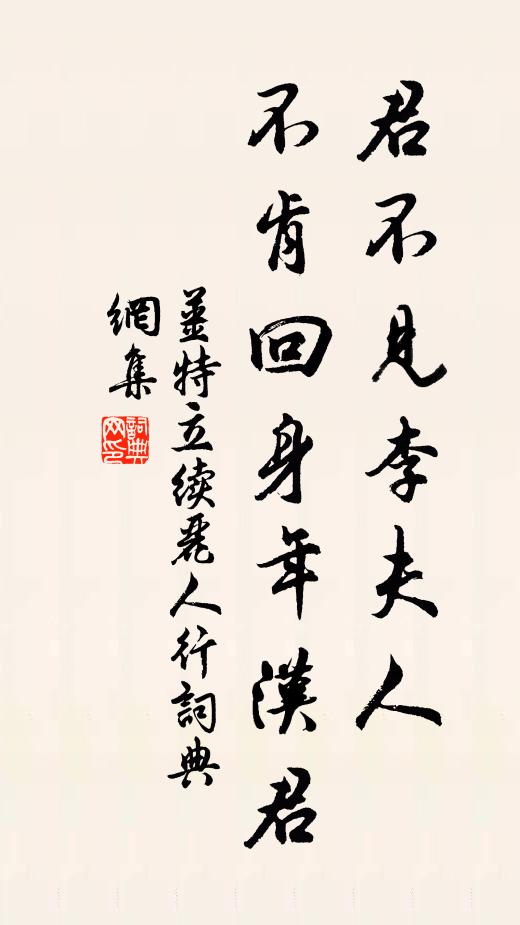 君不見李夫人
不肯回身年漢君
薑特立續麗人行詞典
網集
詞典
网印